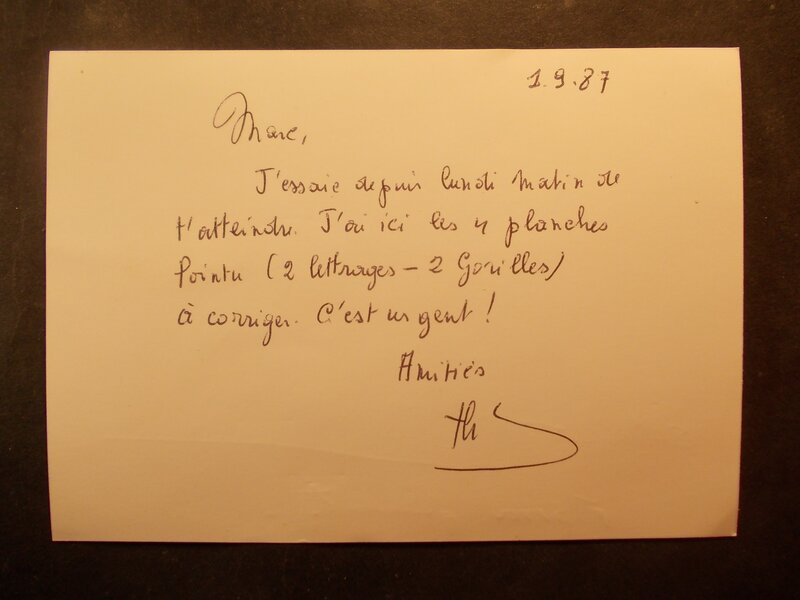 1.9.87
Marc,
J'essaie depuis lundi matin de
t'atteindre. J'ai ici les 4 planches
Pointu (2 lettrages – 2 Gorilles)
à corriger. C'est urgent !
Amitiés
Th